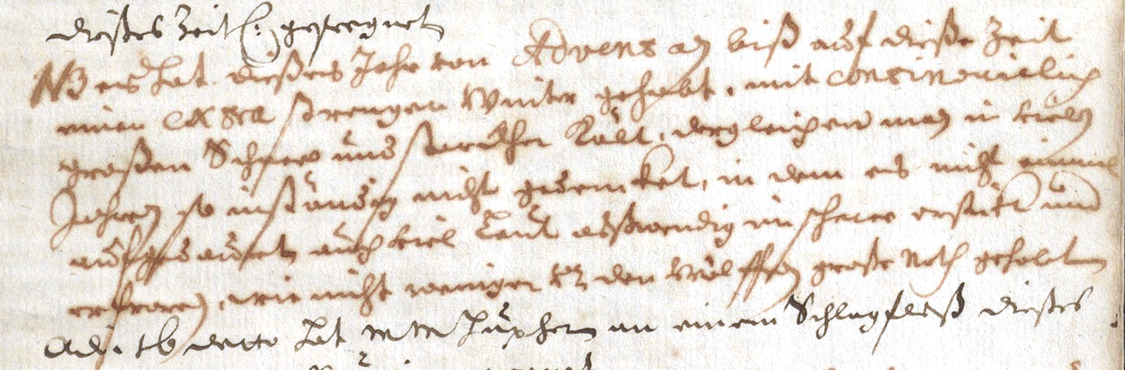 dises Zeitl: gesegnet
NB es hat dises Jahr von Advent an biß auf dise Zeit
einen extra strengen Winter gehabt, mit continuirlich
großen Schnee und starckher Kält, dergleichen man in vielen
Jahren so inständig nicht gemercket, in dem es nicht einmal
aufgedauet, auch viel Leut außwendig im schnee erstickt und
erfroren, wie nicht weniger von den Wölffen große Noth gehabt
Adi 16 detto hat an einem Schlagfluß dises